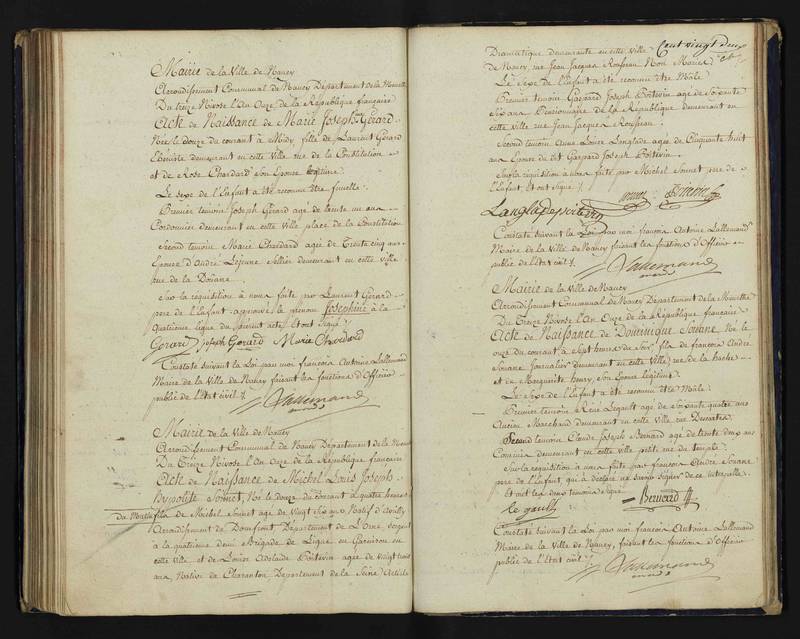 Mairie de la Ville de Nancy
Arrondissement Communal de Nancy Département de la Meurthe
Du Treize Nivose l'An Onze de la République française
Acte de Naissance de Marie Josephine Gérard
Née le douze du courant à Midy, fille de Laurent Gérard
Ebéniste demeurant en cette Ville rue de la Constitution
et de Rose Chardard son Epouse légitime
Le sexe de l'Enfant a été reconnu être femelle.
Premier temoin Joseph Gérard agé de trente un ans
Cordonnier demeurant en cette Ville place de la Constitution
Second temoin Marie Chardard agée de Trente cinq ans
Epouse d'André Lejeune Sellier demeurant en cette Ville
rue de la Douane
Sur la réquisition à nous faite par Laurent Gérard
pere de l'Enfant. approuvé le prenom Josephine à la
quatrieme ligne du present acte Et ont signé
Gerard joseph Gerard Marie Chardard
Constaté suivant la Loi par moi françois Antoine Lallemand
Maire de la Ville de Nancy faisant les fonctions d'Officier
public de l'état civil.
Lallemand
Mairie de la Ville de Nancy
Arrondissement Communal de Nancy Département de la Meurthe
Du Treize Nivose l'An Onze de la République française
Acte de Naissance de Michel Louis Joseph
hypolite Sonnet, Né le douze du courant à quatre heures
du Matin fils de Michel Sonnet agé de Vingt Six ans Natif d'
Arrondissement de Domfront Département de L'Orne sergent
à la quatrieme demi Brigade de Ligne en Garnison en
cette Ville et de Louise Adelaide Poitevin agée de vingt trois
ans, Native de Charanton Departement de la Seine, Artiste
Cent vingt deux
Dramatique demeurante en cette Ville
de Nancy, rue Jean Jacques Rousseau Non Mariés
Le Sexe de l'Enfant a été reconnu être Mâle.
Premier temoin Gaspard Joseph Poitevin agé de Soixante
Six ans Pensionnaire de la République demeurant en
cette Ville rue Jean Jacques Rousseau.
Second temoin Anne Louise Langlade agée de Cinquante huit
ans Epouse du dit Gaspard Joseph Poitevin.
Sur la réquisition à nous faite par Michel Sonnet pere de
l'Enfant Et ont signé.
sonnet
Langlade poitevin
Constaté suivant la Loi par moi françois Antoine Lallemand
Maire de la Ville de Nancy faisant les fonctions d'Officier
public de l'état civil.
Lallemand
Mairie de la Ville de Nancy
Arrondissement Communal de Nancy Département de la Meurthe
Du Treize Nivose l'An Onze de la République française
Acte de Naissance de Dominique Souane, Né le
onze du courant à Sept heures du Soir, fils de françois André
Souane Journalier demeurant en cette Ville, rue de la hache
et de Marguerite henry, son Epouse légitime
Le Sexe de l'Enfant a été reconnu être Mâle.
Premier temoin René Legault agé de Soixante quatre ans
Ancien Marchand demeurant en cette Ville rue Descartes
Second temoin Claude Joseph Bernard agé de trente deux ans
Commis demeurant en cette Ville petite rue du temple.
Sur la réquisition à nous faite par françois André Souane
pere de l'Enfant, qui a déclaré ne savoir signer de ce interpellé
Et ont les deux temoins signé.
le gault Bernard
Constaté suivant la Loi par moi françois Antoine Lallemand
Maire de la Ville de Nancy, faisant les fonctions d'Officier
public de l'état civil.
Lallemand